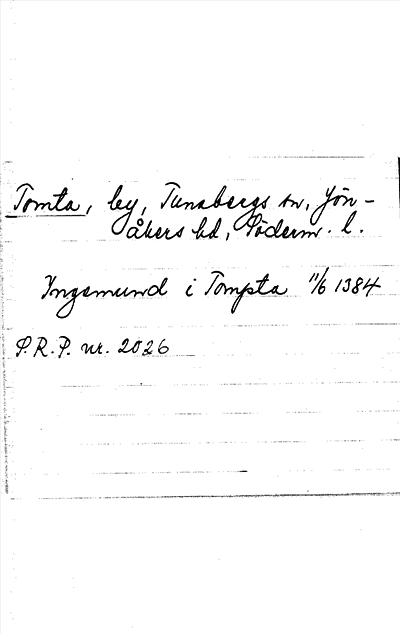 Tomta, by, Tunabergs sn, Jön-
åkers hd, Söderm. l.
Yngemund i Tompta 11/6 1384
P.R.P. nr. 2026